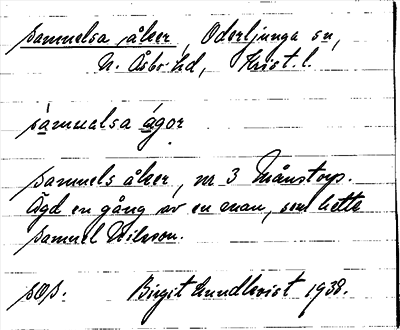 Samuelsa åker, Oderljunga sn,
N. Åsbo hd, Krist. l.
sàmualsa ágor
Samuels åker, nr 3 Månstorp.
Ägd en gång av en man, som hette
Samuel Nilsson.
SOS. Birgit Lundkvist 1938.